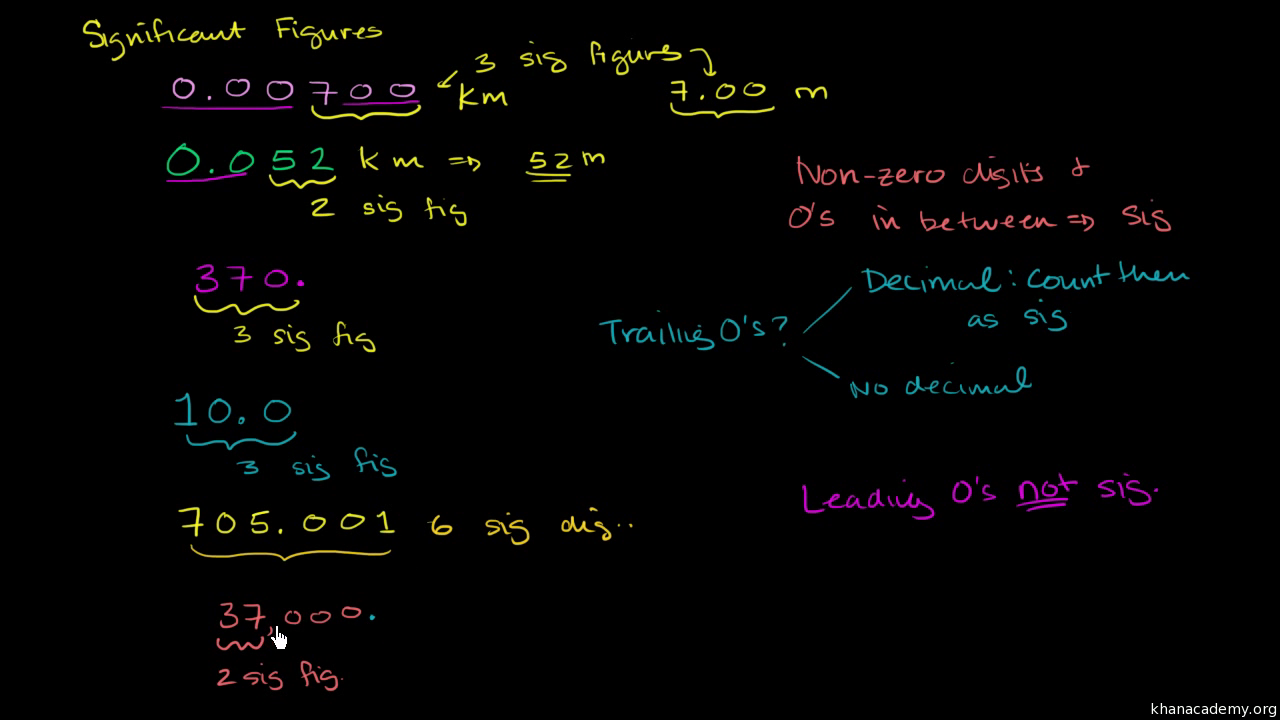 Significant Figures
3 sig figures
0.00700 km
7.00 m
0.052 km ⇒ 52 m
2 sig fig
370.
3 sig fig
10.0
3 sig fig
705.001 6 sig dig..
37,000.
2 sig fig.
Non-zero digits &
0's in between ⇒ sig
Trailing 0's?
Decimal: Count them
as sig
No decimal
Leading 0's not sig.
khanacademy.org